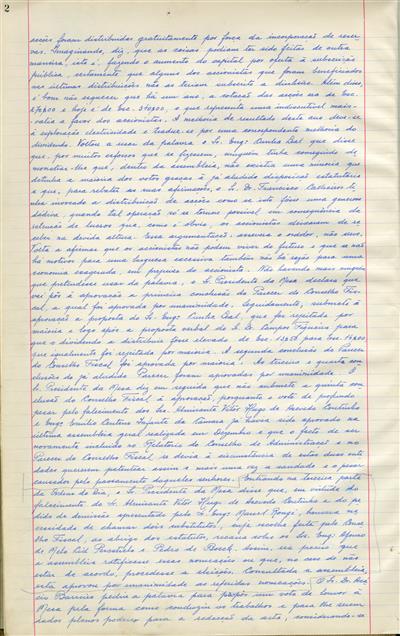 2
acções foram distribuidas gratuitamente por força da incorporação de reser-
vas. Imaginando, diz, que as coisas podiam ter sido feitas de outra
maneira, isto é, fazendo o aumento do capital por oferta à subscrição
pública, certamente que alguns dos accionistas que foram beneficiados
nas últimas distribuições não as teriam subscrito a dinheiro. Além disso,
é bom não esquecer que há um ano, a cotação das acções era de Esc.
e hoje é de Esc. o que representa uma indiscutível mais-
valia a favor dos accionistas. A melhoria de resultado deste ano deve-se
à exploração electricidade e traduz-se por uma correspondente melhoria do
dividendo. Voltou a usar da palavra o Sr. Engº Cunha Leal que disse
que, por muitos esforços que se fizessem, ninguém tinha conseguido de-
monstrar-lhe que, dentro da assembleia, não existia uma minoria que
detinha a maioria dos votos graças à já aludida disposição estatutária
e que, para rebater as suas afirmações, o Sr. Dr. Francisco Calheiros ti-
nha invocado a distribuição de acções como se isto fôsse uma generosa
dádiva, quando tal operação só se tornou possível em consequência da
retenção de lucros que, como é óbvio, os accionistas deixaram de re-
ceber na devida altura. Essa argumentação
Volta a afirmar que os accionistas não podem viver de futuro e que se não
há motivos para uma largueza excessiva também não há razão para uma
economia exagerada, em prejuizo do accionista. Não havendo mais ninguém
que pretendesse usar da palavra, o Sr. Presidente da Mesa declara que
vai pôr à aprovação a primeira conclusão do Parecer do Conselho Fis-
cal, a qual foi aprovada por unanimidade. Seguidamente, submete à
aprovação a proposta do Sr. Engº Cunha Leal, que foi rejeitada por
maioria e logo após a proposta verbal do S. Dr. Campos Figueira para
que o dividendo a distribuir fosse elevado de Esc. para Esc.
que igualmente foi rejeitada por maioria. A segunda conclusão do Parecer
do Conselho Fiscal foi aprovada por maioria. As terceira e quarta con-
clusões do já aludido Parecer, foram aprovadas por unanimidade. O
Sr. Presidente da Mesa diz em seguida que não submete a quinta con-
clusão do Conselho Fiscal à aprovação, porquanto o voto de profundo
pesar pelo falecimento dos Srs. Almirante Vitor Hugo de Azevedo Coutinho
e Engº Emílio Cintra Infante da Câmara já havia sido aprovado na
última assembleia geral realizada em Dezembro e que o facto de ser
novamente incluído no Relatório do Conselho de Administração e no
Parecer do Conselho Fiscal se devia à circunstância de estas duas enti-
dades quererem patentear assim e mais uma vez a saudade e o pesar
causados pelo passamento daqueles senhores. Entrando na terceira parte
da Ordem do Dia, o Sr. Presidente da Mesa disse que, em virtude do
falecimento do Sr. Almirante Vitor Hugo de Azevedo Coutinho e do pe-
dido de demissão apresentado pelo Sr. Engº Manuel houvera ne-
cessidade de chamar dois substitutos, cuja escolha feita pelo Conse-
lho Fiscal, ao abrigo dos estatutos, recaíra sobre os Srs. Engº Afonso
de Melo Cid Perestrelo e Pedro de Assim, era preciso que
a assembleia ratificasse essas nomeações ou que, no caso de não
estar de acordo, procedesse a eleições. Consultada a assembleia,
esta aprovou por unanimidade as referidas nomeações. O Sr. Dr.
Barreiro pediu a palavra para propôr um voto de louvor à
Mesa pela forma como conduziu os trabalhos e para lhe serem
dados plenos poderes para a redacção da acta, considerando-se